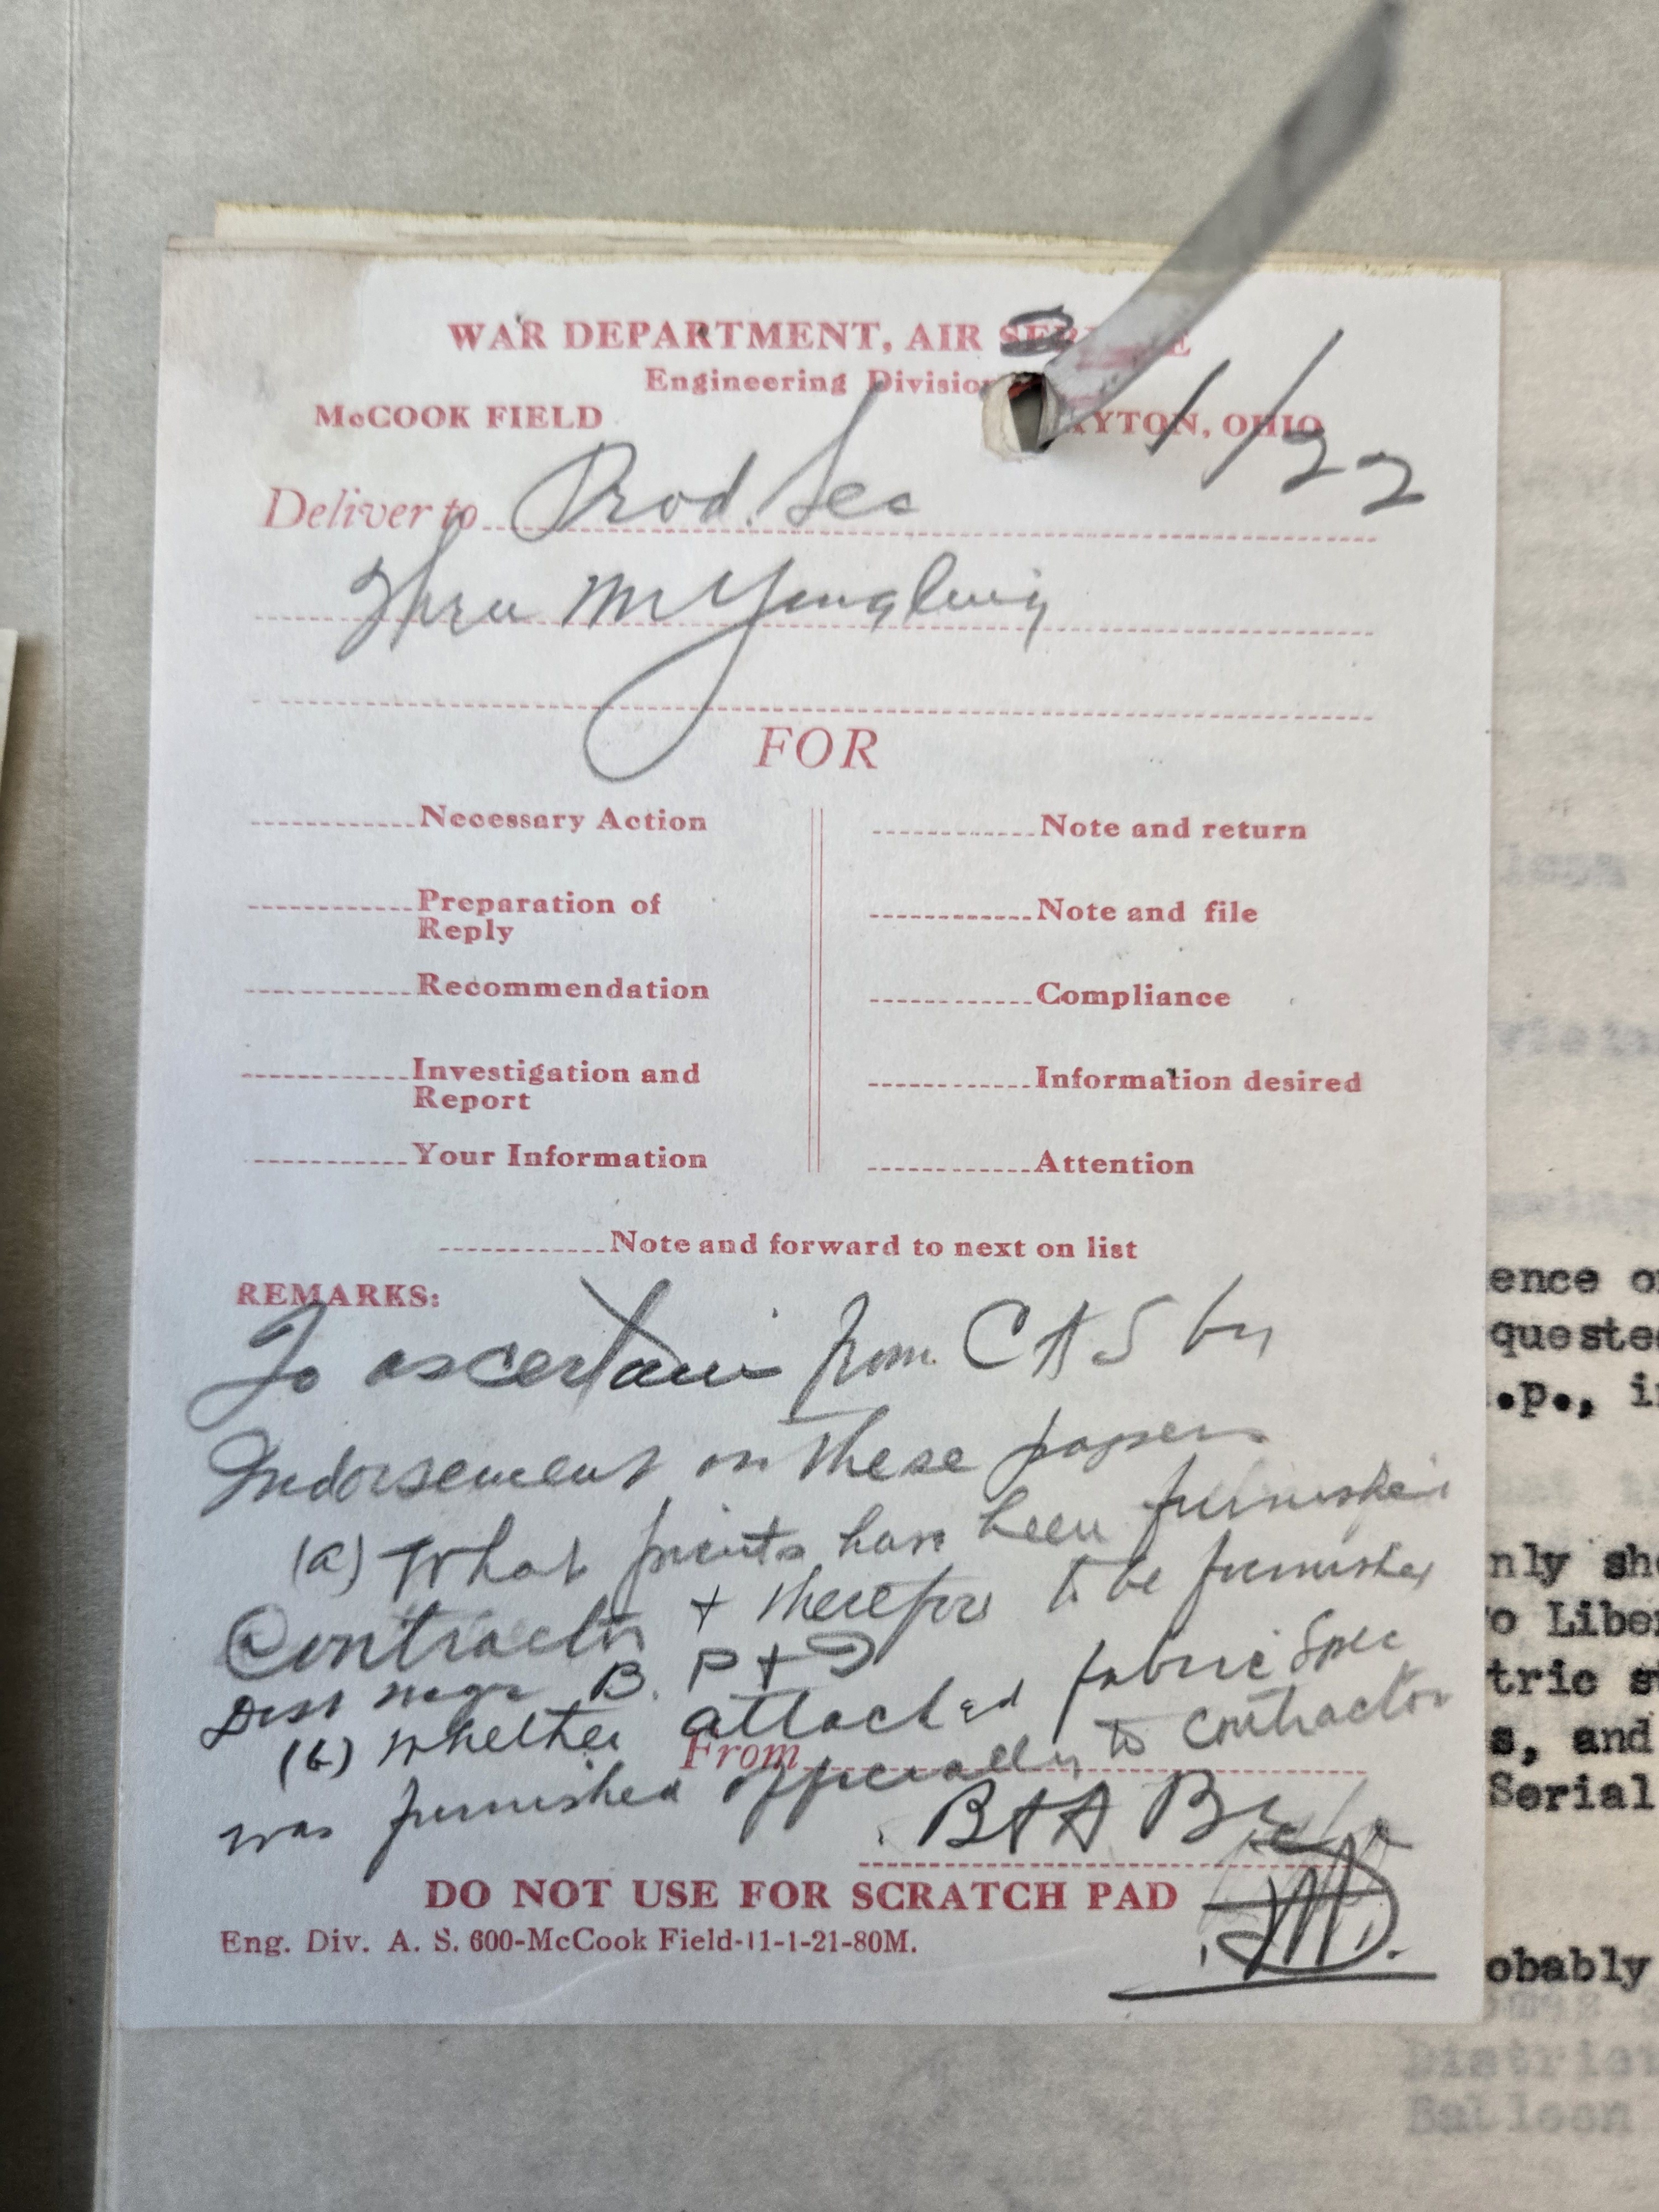 WAR DEPARTMENT, AIR SE
Engineering Division
McCOOK FIELD YTON, OHIO
1/22
Deliver to Prod. Sec
Thru Mr Youngling
FOR
Necessary Action
Note and return
Preparation of
Reply
Note and file
Recommendation
Compliance
Investigation and
Report
Information desired
Your Information
Attention
Note and forward to next on list
REMARKS:
To ascertain from C A S by
Indorsement on these papers
(a) What prints have been furnished
Contractor + therefore to be furnished
Dist B.
(b) Whether attached fabric spec
From
was furnished officially to contractor
B + A Br
DO NOT USE FOR SCRATCH PAD
Eng. Div. A. S. 600-McCook Field-11-1-21-80M.
ence
queste
.p., i
nly sh
o Liber
tric s
s, and
Serial
obably
District
Balloon